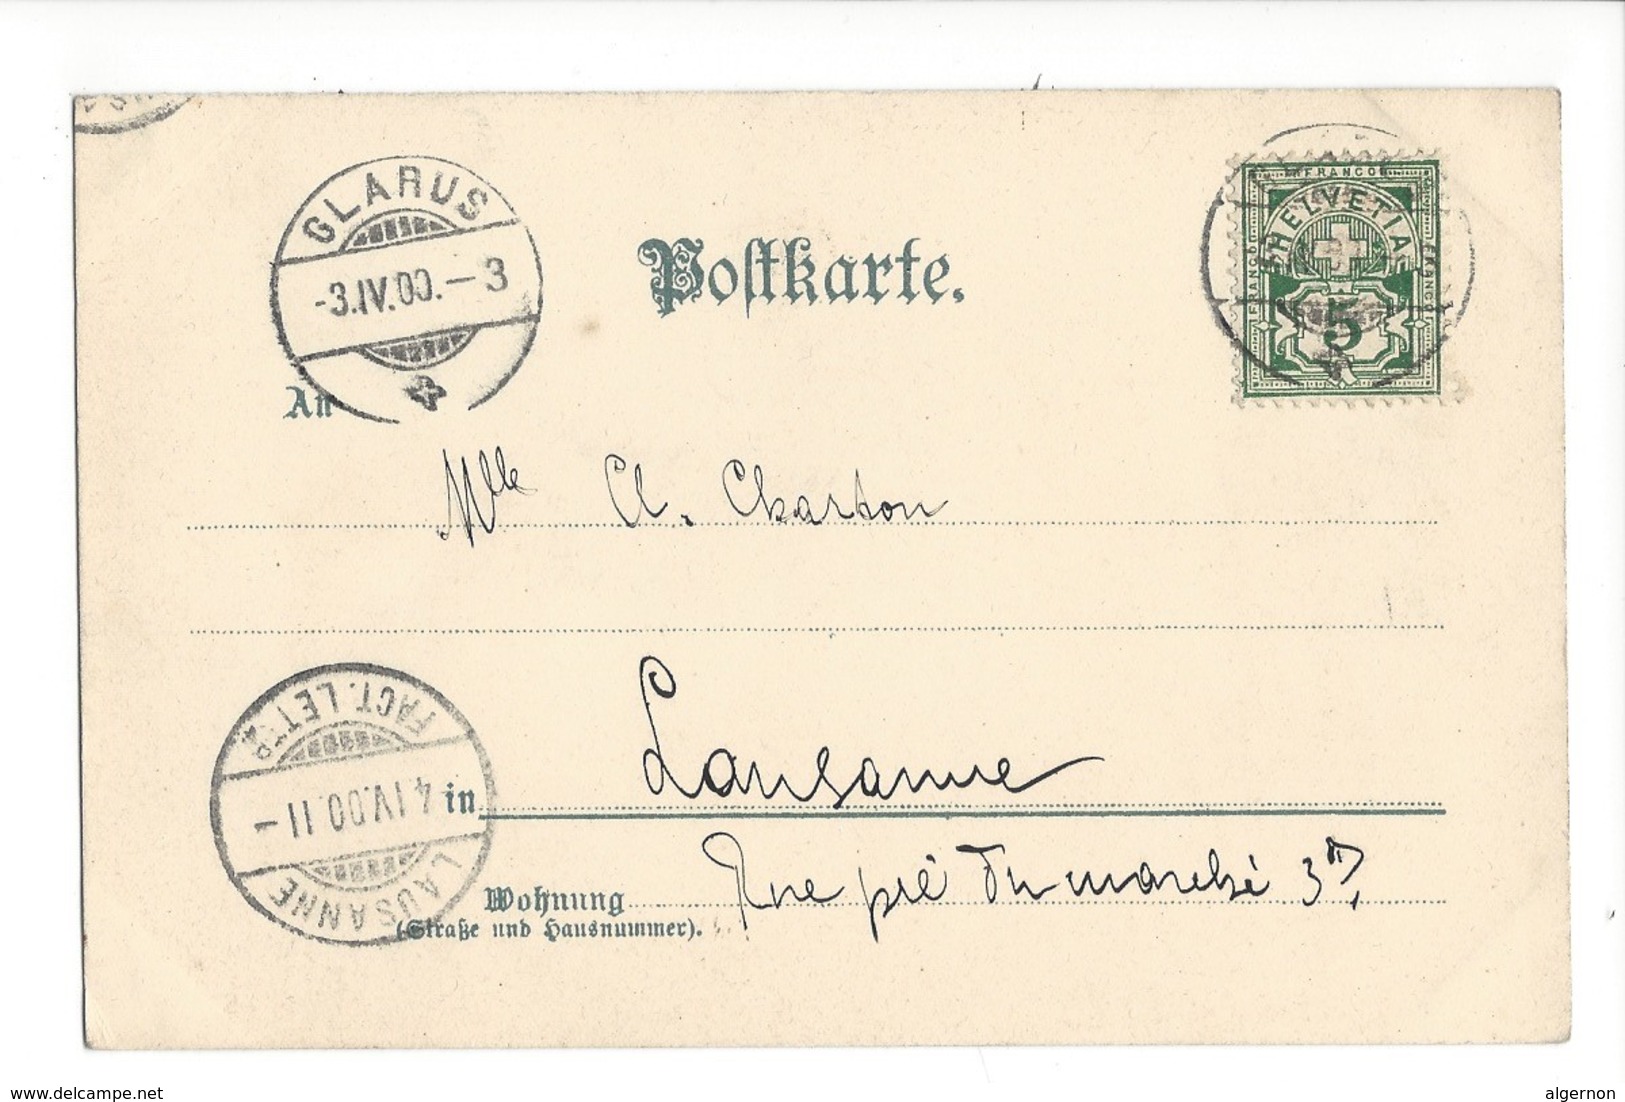 GLARUS
-3.IV.00.-3
Postkarte.
FRANCO
HELVETIA
FRANCO
FRANCO
5
An
Mlle Cl. Charton
Lausanne
in
FACT. LETTR
4.IV.00.11-
LAUSANNE
Rue pré du marché 3
Wohnung
(Straße und Hausnummer).
www.delcampe.net
algernon